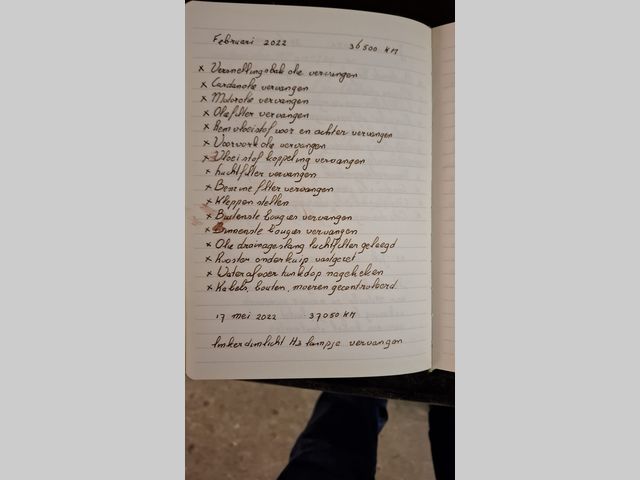 Februari 2022 36500 KM
x Versnellingsbak olie vervangen
x Cardanolie vervangen
x Motorolie vervangen
x Oliefilter vervangen
x Remvloeistof voor en achter vervangen
x Voorvork olie vervangen
x Vloeistof koppeling vervangen
x Luchtfilter vervangen
x Benzine filter vervangen
x Kleppen stellen
x Buitenste bougies vervangen
x Binnenste bougies vervangen
x Olie drainageslang luchtfilter geleegd
x Rooster onderkuip vastgezet
x Waterafvoer tankdop nagekeken
x Kabels, bouten, moeren gecontroleerd
17 mei 2022 37050 KM
linkerdimlicht H3 lampje vervangen